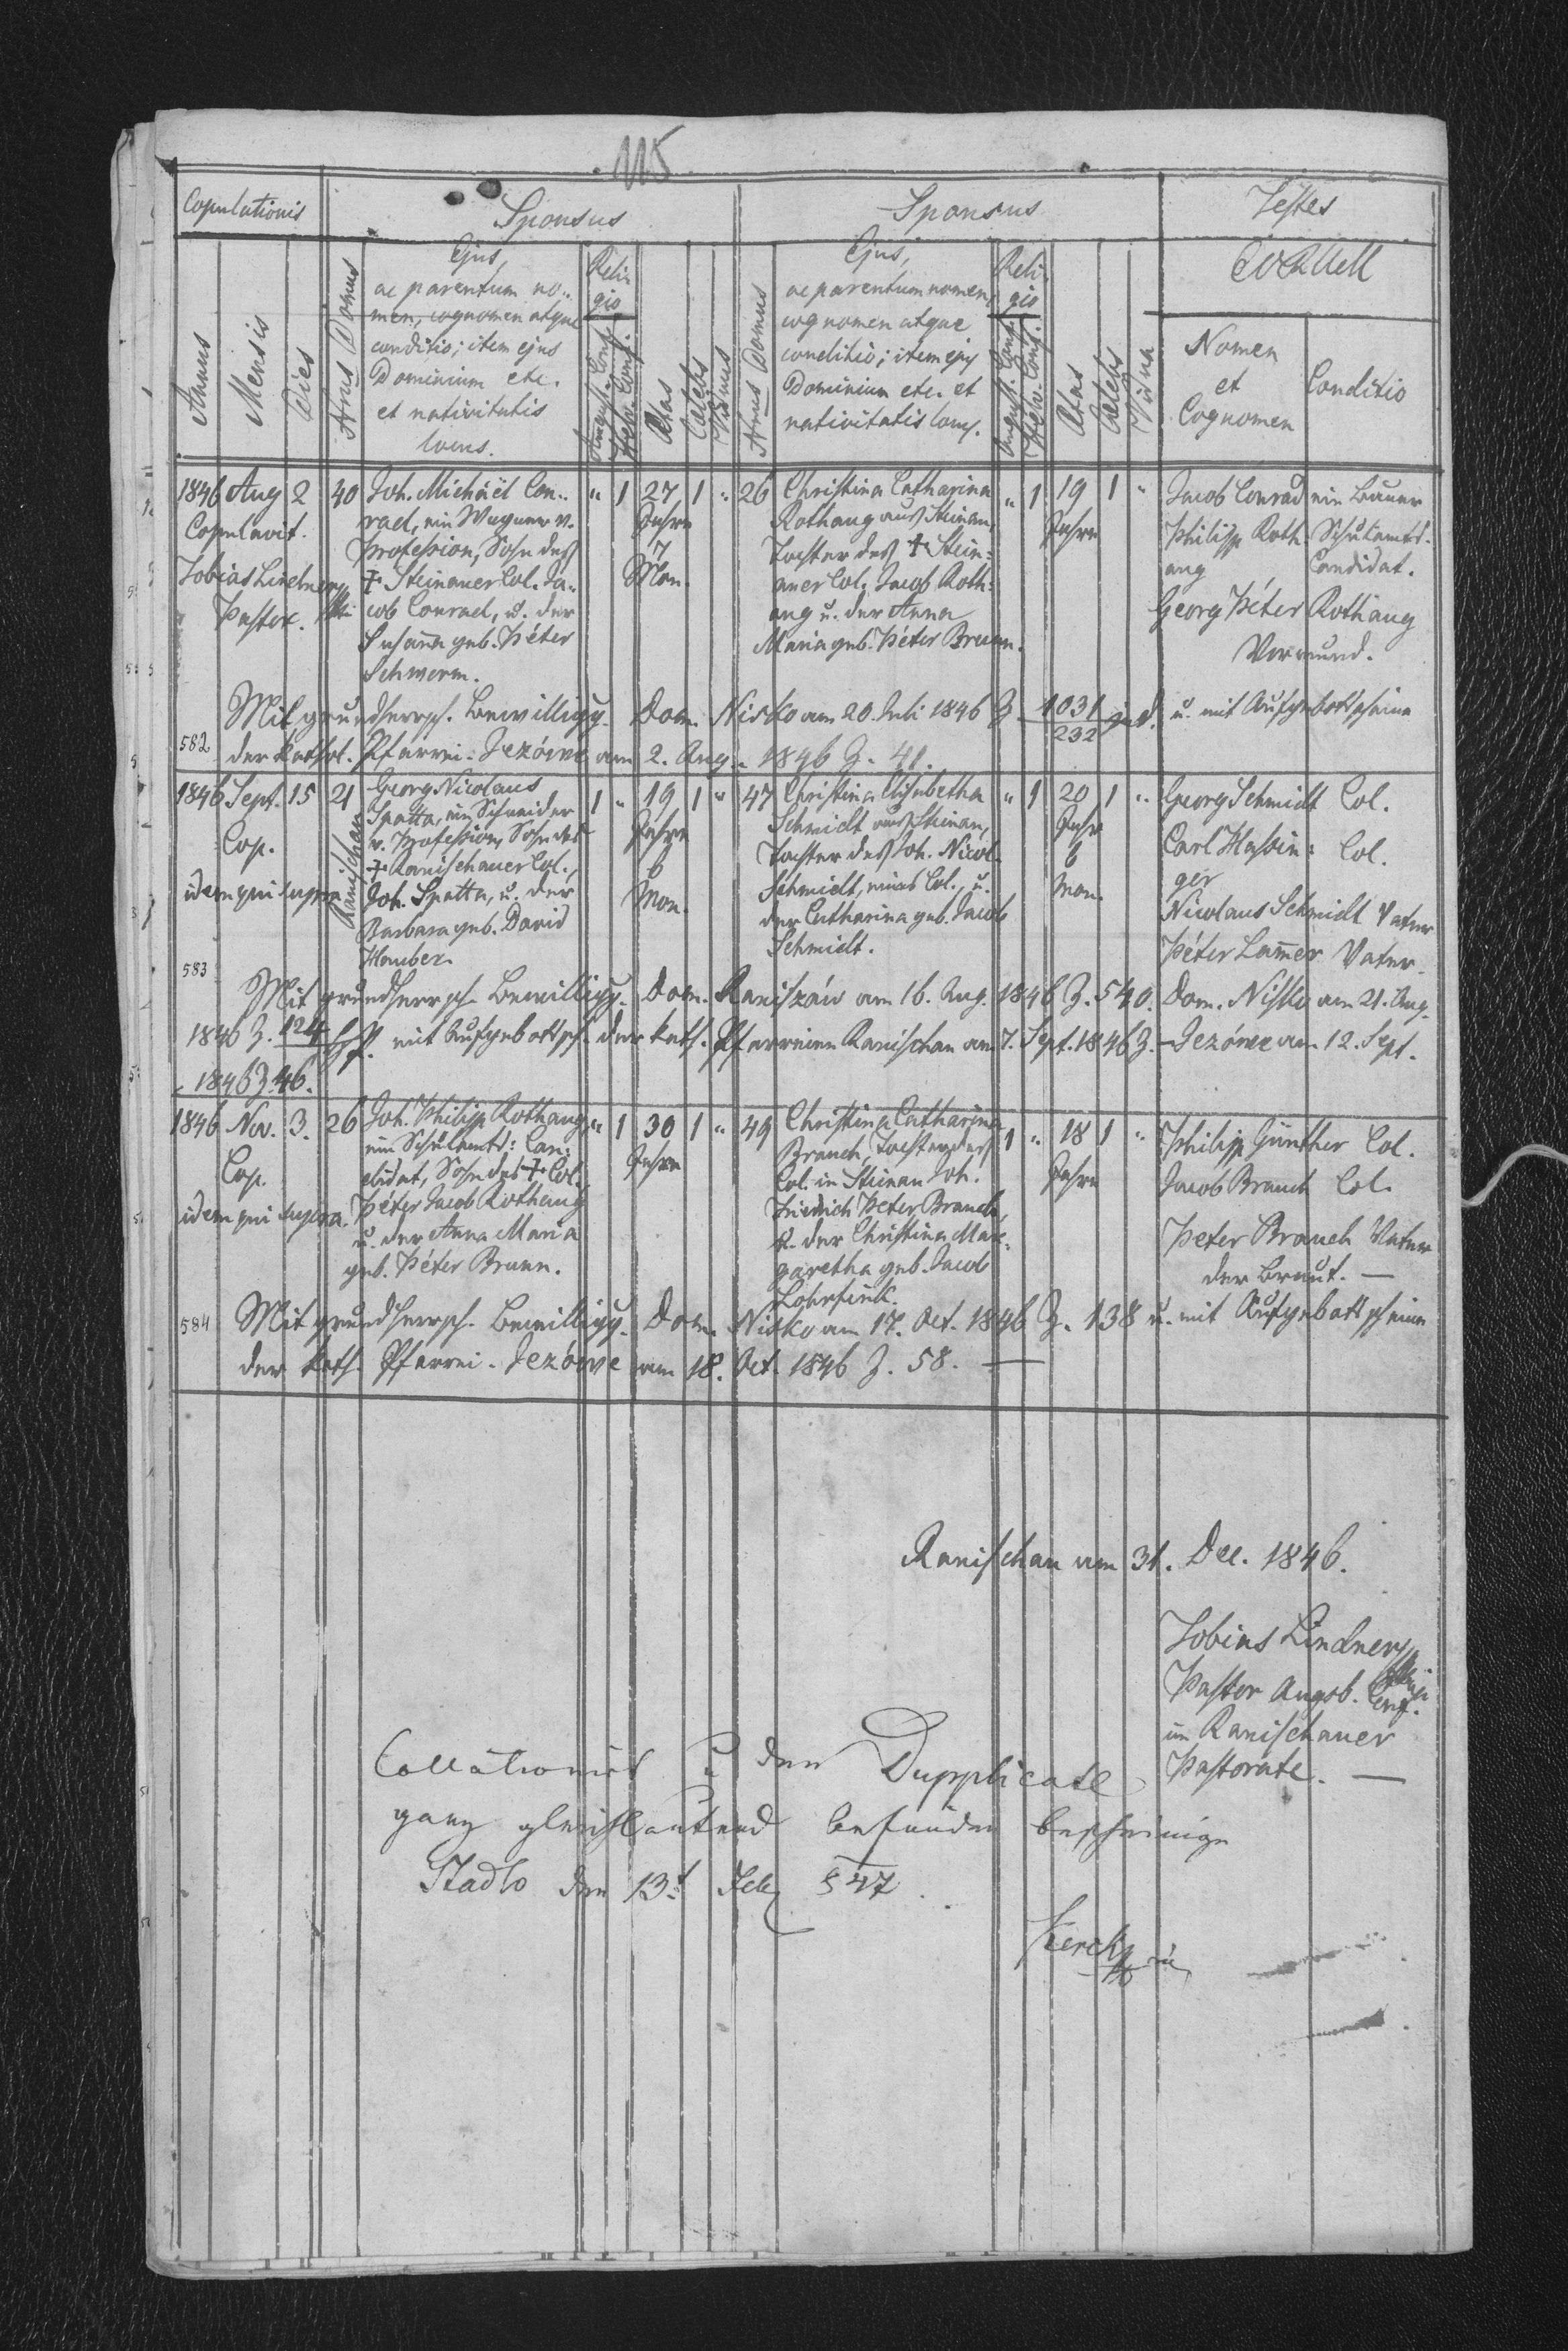 115
Copulationis
Sponsus
Sponsus
Testes
Annus
Mensis
Dies
Nrus Domus
Ejus,
ac parentum no-
men, cognomen atque
conditio; item ejus
Dominium etc.
et nativitatis
locus.
Reli-
gio
August. Conf.
Helv. Conf.
Aetas
Caelebs
Viduus
Nrus Domus
Ejus,
ac parentum nomen,
cognomen atque
conditio; item ejus
Dominium etc. et
nativitatis locus.
Reli-
gio
August. Conf.
Helv. Conf.
Aetas
Caelebs
Vidua
Nomen
et
Cognomen
Conditio
1846 Aug 2
Copulavit.
Tobias Lindner
Pastor.
40
Joh. Michäel Con-
rad, ein Wagner v.
Profession, Sohn des
+ Steinauer Col. Ja-
cob Conrad, u. der
Susaña geb. Péter
Schwerm.
" 1 27 1 "
Jahre
7
Mon.
26
Christina Catharina
Rothaug aus Steinau,
Tochter des + Stein=
auer Col. Jacob Roth=
aug u. der Anna
Maria geb. Péter Brunn.
" 1 19 1 "
Jahre
Jacob Conrad ein Bauer
Philipp Roth- Schulamts-
aug Candidat.
Georg Péter Rothaug
Vormund.
582
Mit grundherrsch. Bewilligg. Dom. Nisko am 20. Juli 1846 Z. 1031/232 u. mit Aufgebottscheine
der kathol. Pfarrei-Jezówe am 2. Aug. 1846 Z. 41.
1846 Sept. 15
Cop.
idem qui supra
21
Ranischau
Georg Nicolaus
Spatta, ein Schneider
v. Profession, Sohn des
+ Ranischauer Col.,
Joh. Spatta, u. der
Barbara geb. David
Hauber.
1 " 19 1 "
Jahre
6
Mon.
47
Christina Elisabetha
Schmidt aus Steinau,
Tochter des Joh. Nicol.
Schmidt, eines Col., u.
der Catharina geb. Jacob
Schmidt.
" 1 20 1 "
Jahr
6
Mon.
Georg Schmidt Col.
Carl Hassin= Col.
ger
Nicolaus Schmidt Vater
Péter Lam̄er Vater.
583
Mit grundherrsch. Bewilligg. Dom. Raniszów am 16. Aug. 1846 Z. 540. Dom. Nisko am 21. Aug.
1846 Z. 124 mit Aufgebottsch. der kath. Pfarreien Ranischau am 7. Sept. 1846 Z. - Jezówe am 12. Sept.
1846 Z. 46.
1846 Nov. 3.
Cop.
idem qui supra.
26
Joh. Philipp Rothaug,
ein Schulamts: Can=
didat, Sohn des + Col.
Péter Jacob Rothaug
u. der Anna Maria
geb. Péter Brunn.
" 1 30 1 "
Jahre
49
Christina Catharina
Brauch, Tochter des
Col. in Steinau Joh.
Friedrich Peter Brauch,
u. der Christina Mar-
garetha geb. Jacob
Lohrfink.
1 " 18 1 "
Jahre
Philipp Günther Col.
Jacob Brauch Col.
Peter Brauch Vater
der Braut. —
584
Mit grundherrsch. Bewilligg. Dom. Nisko am 17. Oct. 1846 Z. 138 u. mit Aufgebottscheine
der kath. Pfarrei-Jezówe am 18. Oct. 1846 Z. 58. —
Ranischau am 31. Dec. 1846.
Tobias Lindner
Pastor Augsb. Conf.
im Ranischauer
Pastorate. —
Collationirt u den Dupplicate
ganz gleichlautend befunden bescheinige
Stadlo den 13t Feb 847